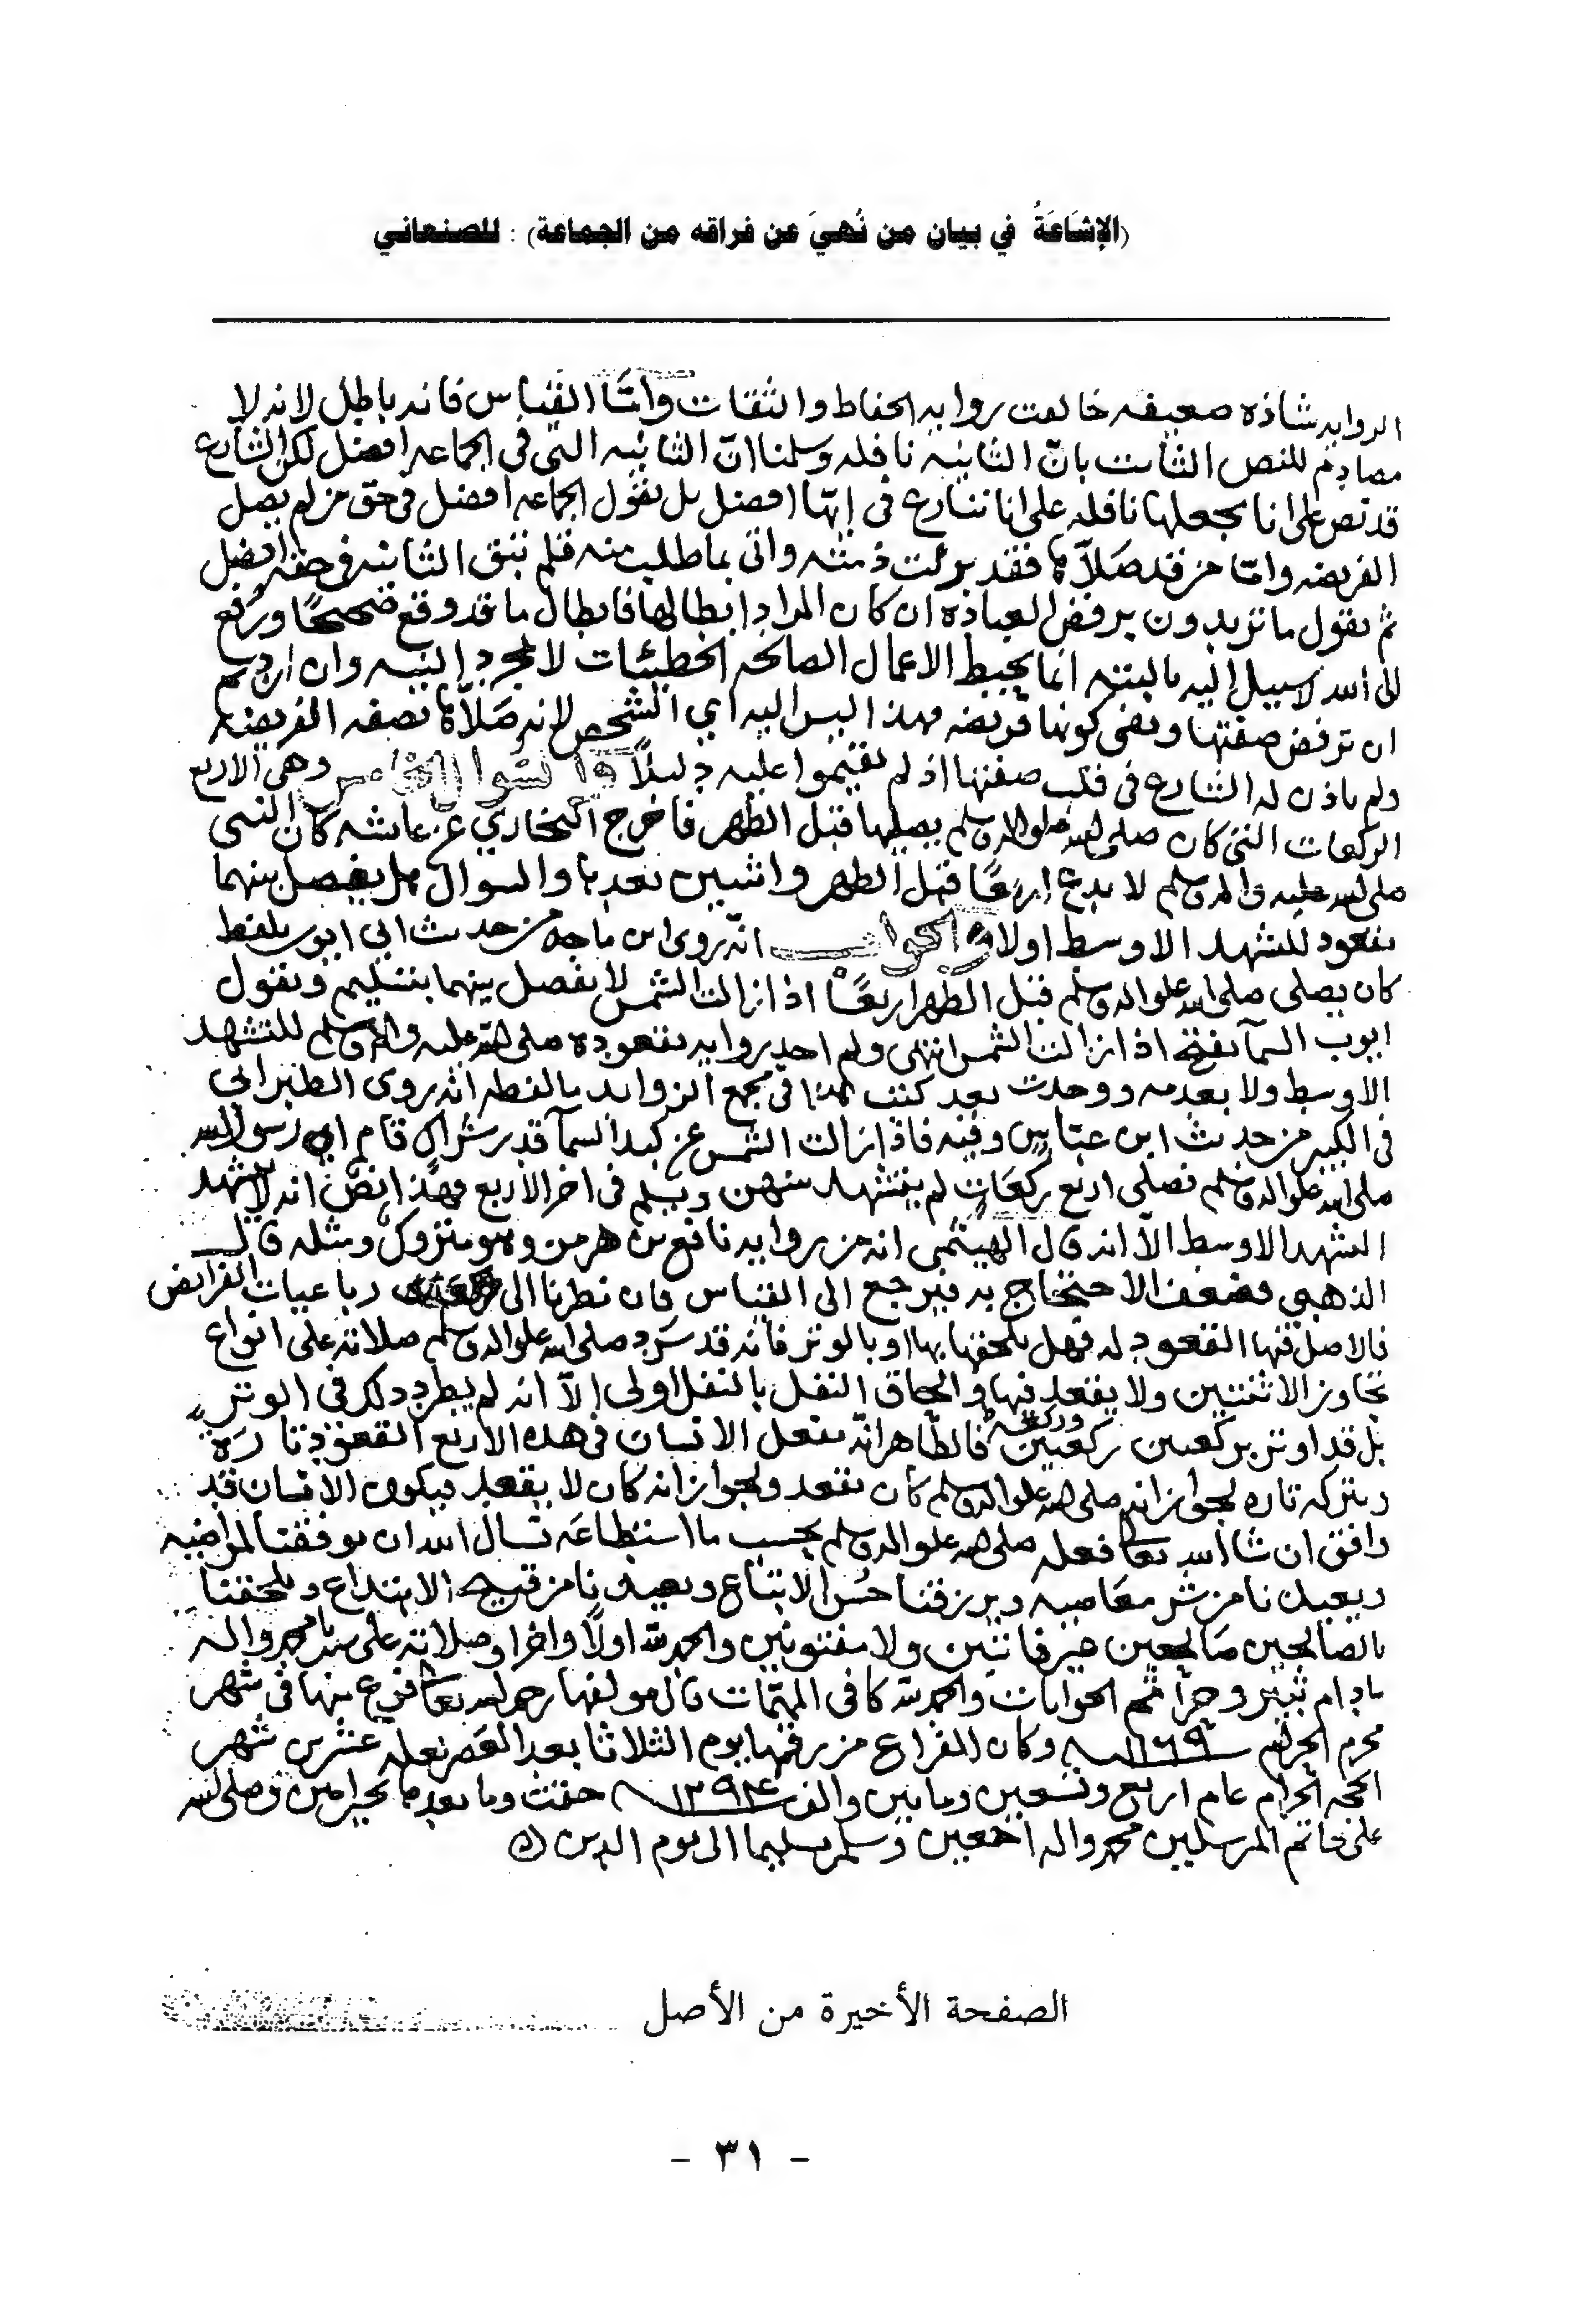 (الإشَاعَةُ في بيان من نُهيَ عن فراقه من الجماعة) : للصنعاني
الروايه شاذه ضعيفه خالفت روايه الحفاظ والثقات وامّا القياس فانه باطل لانه لا
مصادم للنص الثابت بانّ الثانيه نافله وسلمنا انّ الثانيه التي في الجماعه افضل لكن الشارع
قد نص على انا نجعلها نافله على انا ننازع في إنها افضل بل نقول الجماعه افضل في حق من لم يصل
الفريضه وامّا من قد صَلّاها فقد برئت ذمته واتى بما طلب منه فلم تبق الثانيه في حقه افضل
ثم نقول ما تريدون برفض العباده ان كان المراد ابطالها فابطال ما قد وقع صحيحًا ورفع
الى الله لا سبيل إليه بالبته انما يحبط الاعمال الصالحه الخطيئات لا مجرد النيه وان اردتم
ان ترفض صفتها ونفى كونها فريضه فهذا ليس اليه اي الشخص لانه صَلّاها بصفه الفريضه
ولم ياذن له الشارع في قلب صفتها اذ لم تقيموا عليه دليلاً والسوال الخامس وهي الاربع
الركعات التي كان صلى الله عليه واله وسلم يصليها قبل الظهر فاخرج البخاري عن عايشه كان النبي
صلى الله عليه واله وسلم لا يدع اربعًا قبل الظهر واثنين بعدها والسوال هل يفصل بينهما
بقعود للتشهد الاوسط اولا والجواب انّه روى ابن ماجه من حديث ابي ايوب بلفظ
كان يصلي صلى الله عليه واله وسلم قبل الظهر اربعًا اذا زالت الشمس لا يفصل بينهما بتسليم ويقول
ابوب السمآ تفتح اذا زالت الشمس انتهى ولم اجد روايه بقعوده صلى الله عليه واله وسلم للتشهد
الاوسط ولا بعدمه ووجدت بعد كتب هذا في مجمع الزوايد ما لفظه انه روى الطبراني
في الكبير من حديث ابن عبّاس وفيه فاذا زالت الشمس عن كبد السمآ قدر شراك قام اي رسول الله
صلى الله عليه واله وسلم فصلى اربع ركعَات لم يتشهد بينهن ويسلم في اخر الاربع فهذا نص انه لا يتشهد
التشهد الاوسط الاّ انه قال الهيثمي انه من روايه نافع بن هرمز وهو متروك ومثله قال
الذهبي فضعف الاحتجاج به فيرجع الى القياس فان نظرنا الى رباعيات الفرايض
فالاصل فيها القعود له فهل يلحقها بها او بالوتر فانه قد سَرد صلى الله عليه واله وسلم صلاته على انواع
تجاوز الاثنتين ولا يقعد فيها والحاق النفل بالنفل اولى إلاّ انه لم يطرد ذلك في الوتر
بل قد اوتر بركعتين ركعتين وركعه فالظاهر انّه يفعل الانسان في هذه الاربع القعود تارَة
ويتركه تاره لجواز انه صلى الله عليه واله وسلم كان يقعد ولجواز انه كان لا يقعد فيكون الانسان قد
وافق ان شا الله تعالى فعله صلى الله عليه واله وسلم بحسب ما استطاعَه نسال الله ان يوفقنا لمراضيه
ويعيذنا من شر معَاصيه ويرزقنا حسُن الاتباع ويعيذنا من قبيح الابتداع ويلحقنا
بالصالحين صَالحين غير فاتنين ولا مفتونين والحمد لله اولًا واخرا وصلاته على سيدنا محمد واله
ما دام ثبير وحرآ تمم الجوابات والحمد لله كافي المهمّات قال مولفها رحمه الله تعالى فرغ منها في شهر
محرم الحرام سـ ١١٦٩ ـنه وكان الفراغ من رقمها يوم الثلاثا بعد العَصر لعله عشرين شهر
الحجه الحرام عام اربع وتسعين ومايتين والف سـ ١٢٩٤ ـنه ختمت وما بعدها بخير امين وصلى الله
على خاتم المرسلين محمد واله اجمعين وسلم تسليما الى يوم الدين
الصفحة الأخيرة من الأصل
- ٣١ -